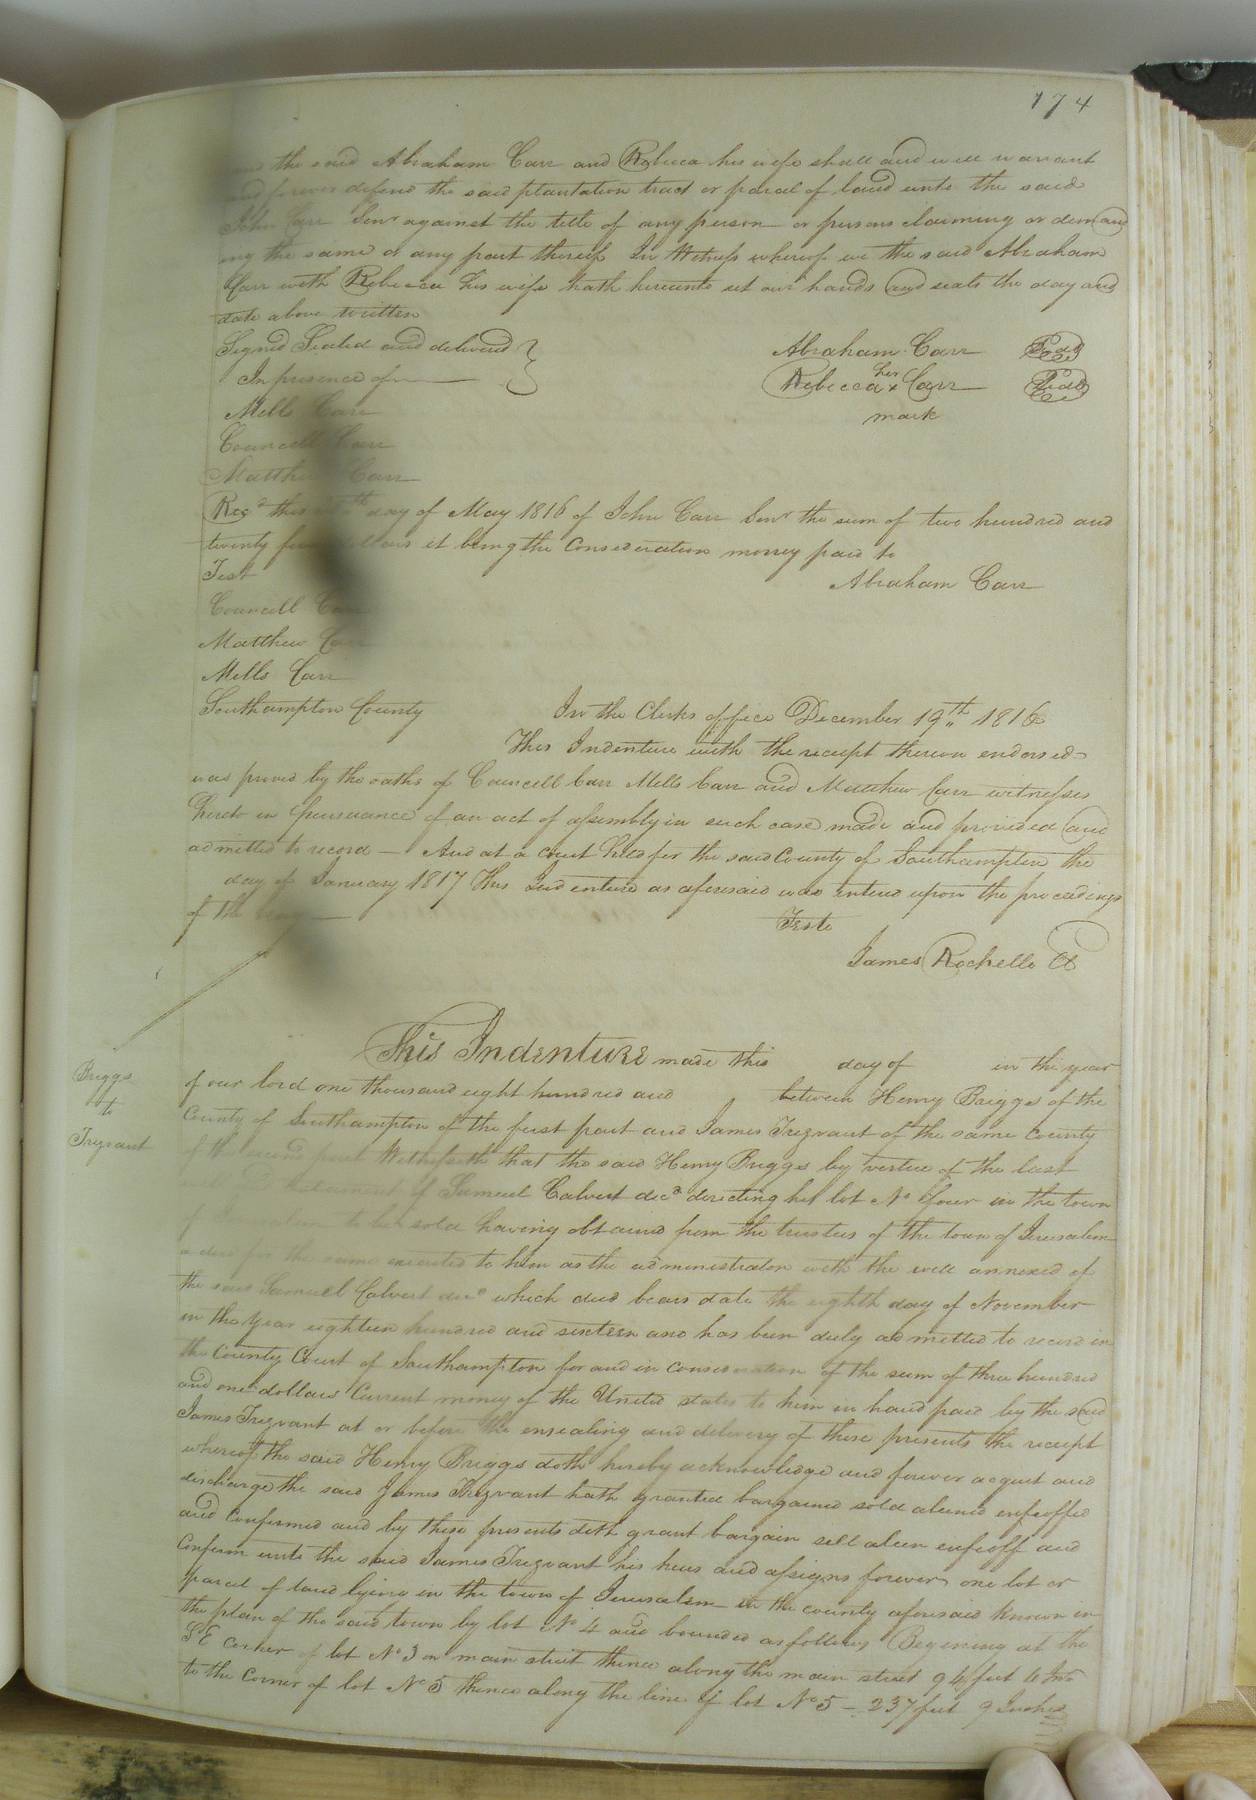 174
the said Abraham Carr and Rebecca his wife shall and will warrant
and forever defend the said plantation tract or parcel of land unto the said
John Carr Senr against the title of any person or persons claiming or demand
ing the same or any part thereof In Witness whereof we the said Abraham
Carr with Rebecca his wife hath hereunto set our hands and seals the day and
date above written
Signed Sealed and delivered
In presence of
Abraham Carr
Rebecca her x Carr
mark
Mills Carr
Councill Carr
Matthew Carr
Recd this day of May 1816 of John Carr Senr the sum of two hundred and
twenty dollars it being the Consideration money paid to
Test
Abraham Carr
Councill Carr
Matthew Carr
Mills Carr
Southampton County In the Clerks office December 19th 1816
This Indenture with the receipt thereon endorsed
was proved by the oaths of Councill Carr Mills Carr and Matthew Carr witnesses
hereto in pursuance of an act of assembly in such case made and provided and
admitted to record — And at a court held for the said County of Southampton the
day of January 1817 This Indenture as aforesaid was entered upon the proceedings
of the
Teste
James Rochelle
This Indenture made this day of in the year
Briggs
to
Trezvant
of our lord one thousand eight hundred and between Henry Briggs of the
County of Southampton of the first part and James Trezvant of the same county
of the second part Witnesseth that the said Henry Briggs by vertue of the last
testament of Samuel Calvert decd directing his lot No four in the town
of to be sold having obtained from the trustees of the town of Jerusalem
a deed for the same executed to him as the administrator with the will annexed of
the said Samuel Calvert decd which deed bears date the eighth day of November
in the year eighteen hundred and sixteen and has been duly admitted to record in
the County Court of Southampton for and in consideration of the sum of three hundred
and one dollars Current money of the United states to him in hand paid by the said
James Trezvant at or before the ensealing and delivery of these presents the receipt
whereof the said Henry Briggs doth hereby acknowledge and forever acquit and
discharge the said James Trezvant hath granted bargained sold aliened enfeoffed
and Confirmed and by these presents doth grant bargain sell alien enfeoff and
Confirm unto the said James Trezvant his heirs and assigns forever one lot or
parcel of land lying in the town of Jerusalem in the county aforesaid known in
the plan of the said town by lot No 4 and bounded as follows Begening at the
S E corner of lot No 3 on main street thence along the main street 94 feet 6 In
to the Corner of lot No 5 thence along the line of lot No 5 — 237 feet 9 Inches